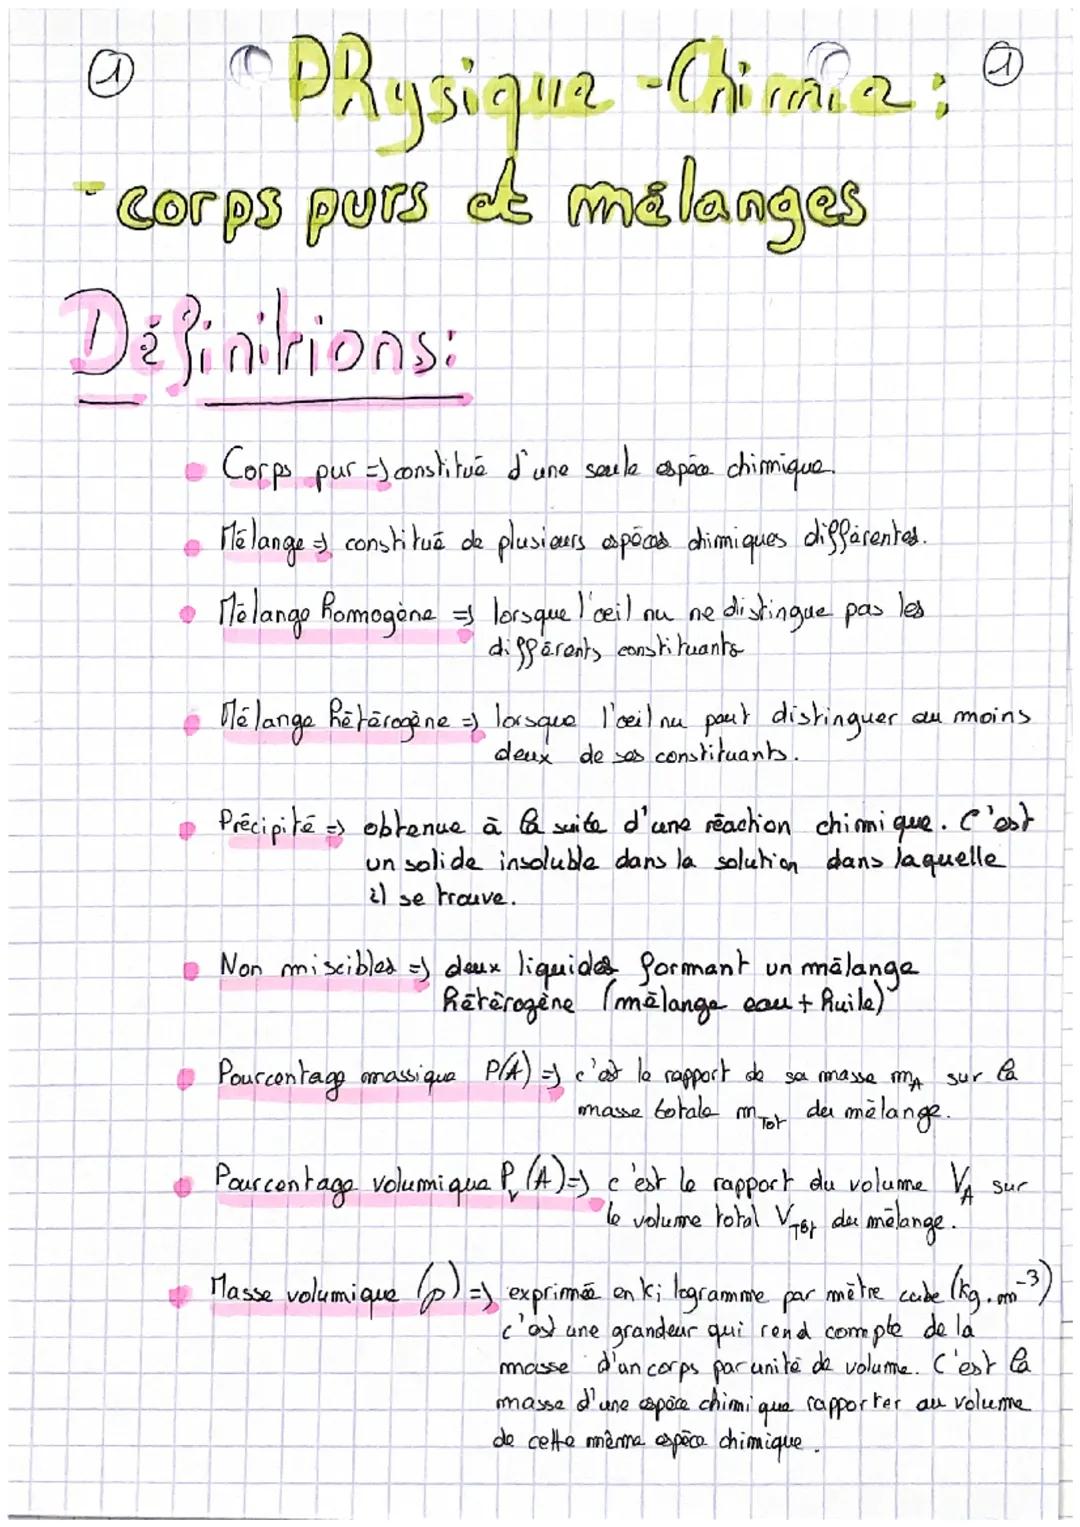 ① Physique-Chimie : ①
- corps purs et mélanges
Définitions:
Corps pur => constitué d'une seule espèce chimique.
Mélange => constitué de plusieurs espèces chimiques différentes.
Mélange homogène => lorsque l'œil nu ne distingue pas les
différents constituants
Mélange hétérogène => lorsque l'œil nu peut distinguer au moins
deux de ses constituants.
Précipité => obtenue à la suite d'une réaction chimique. C'est
un solide insoluble dans la solution dans laquelle
il se trouve.
Non miscibles => deux liquides formant un mélange
hétérogène (mélange eau + huile)
Pourcentage massique P(A) => c'est le rapport de sa masse m_A sur la
masse totale m_Tot du mélange.
Pourcentage volumique P_v(A) => c'est le rapport du volume V_A sur
le volume total V_Tot du mélange.
Masse volumique (ρ) => exprimée en kilogramme par mètre cube (kg.m⁻³)
c'est une grandeur qui rend compte de la
masse d'un corps par unité de volume. C'est la
masse d'une espèce chimique rapporter au volume
de cette même espèce chimique.